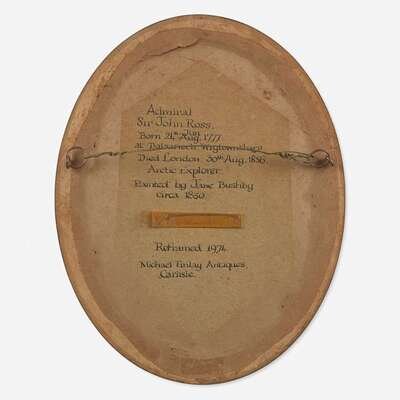 Admiral
Sir John Ross.
Jun
Born 24th Aug. 1777
at Wigtownshire
Died London 30th Aug. 1856
Arctic explorer.
Painted by Jane Bushby
circa 1850
Reframed 1974
Michael Finlay Antiques
Carlisle.